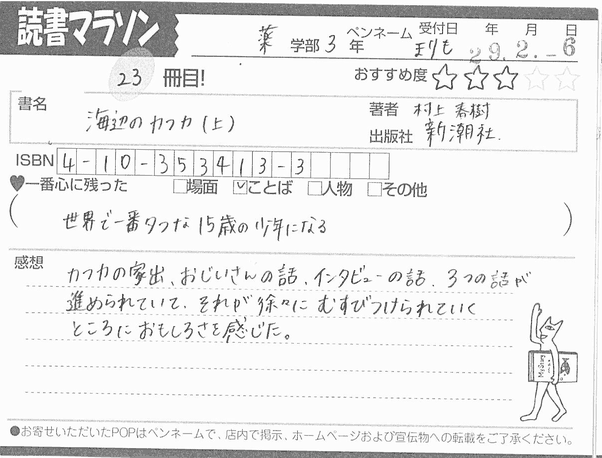 読書マラソン
薬 学部 3 年 ペンネーム まりも 受付日 29 年 2 月 -6 日
23 冊目! おすすめ度 ☆☆☆☆☆
書名 海辺のカフカ(上) 著者 村上春樹
出版社 新潮社.
ISBN 4-10-353413-3
♥一番心に残った □場面 ☑ことば □人物 □その他
(世界で一番タフな15歳の少年になる)
感想 カフカの家出、おじいさんの話、インタビューの話、3つの話が
進められていて、それが徐々にむすびつけられていく
ところにおもしろさを感じた。
●お寄せいただいたPOPはペンネームで、店内で掲示、ホームページおよび宣伝物への転載をご了承ください。